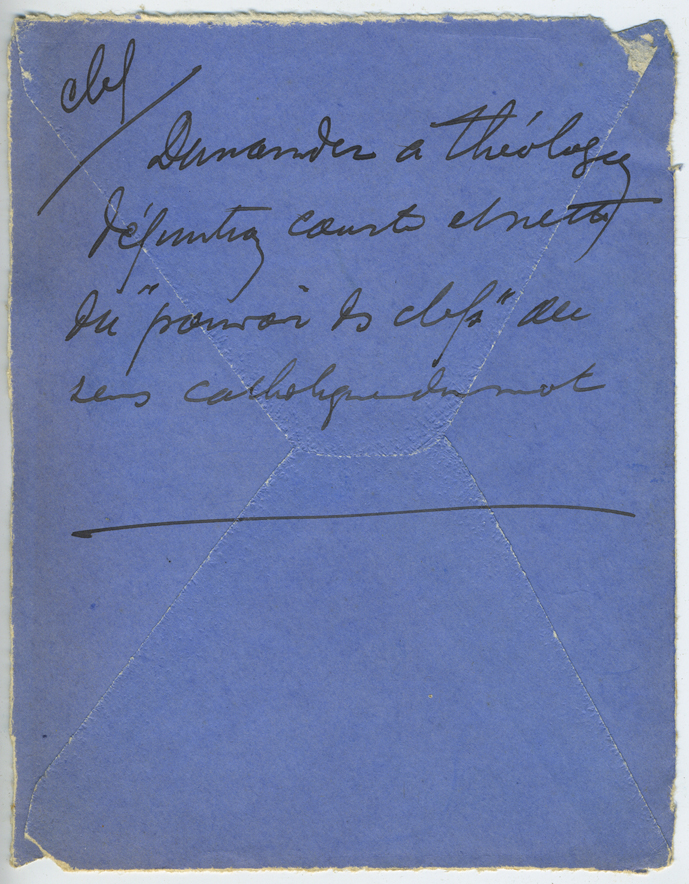 clef
Demander à théologien
définition courte et nette
du "pouvoir des clefs" au
sens catholique du mot